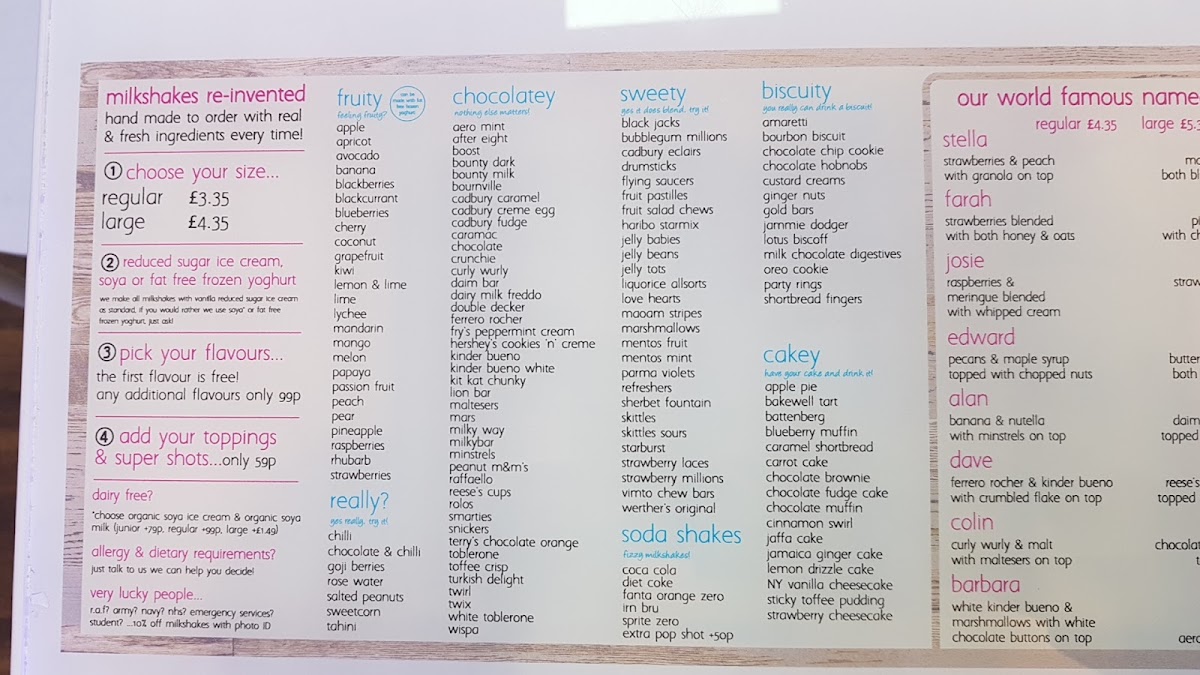 milkshakes re-invented
hand made to order with real
& fresh ingredients every time!
1 choose your size...
regular £3.35
large £4.35
2 reduced sugar ice cream,
soya or fat free frozen yoghurt
we make all milkshakes with vanilla reduced sugar ice cream
as standard, if you would rather we use soya* or fat free
frozen yoghurt, just ask!
3 pick your flavours...
the first flavour is free!
any additional flavours only 99p
4 add your toppings
& super shots...only 59p
dairy free?
*choose organic soya ice cream & organic soya
milk (junior +79p, regular +99p, large +£1.49)
allergy & dietary requirements?
just talk to us we can help you decide!
very lucky people...
r.a.f? army? navy? nhs? emergency services?
student? ...10% off milkshakes with photo ID
fruity
feeling fruity?
can be
made with fat
free frozen
yoghurt
apple
apricot
avocado
banana
blackberries
blackcurrant
blueberries
cherry
coconut
grapefruit
kiwi
lemon & lime
lime
lychee
mandarin
mango
melon
papaya
passion fruit
peach
pear
pineapple
raspberries
rhubarb
strawberries
really?
yes really, try it!
chilli
chocolate & chilli
goji berries
rose water
salted peanuts
sweetcorn
tahini
chocolatey
nothing else matters!
aero mint
after eight
boost
bounty dark
bounty milk
bournville
cadbury caramel
cadbury creme egg
cadbury fudge
caramac
chocolate
crunchie
curly wurly
daim bar
dairy milk freddo
double decker
ferrero rocher
fry's peppermint cream
hershey's cookies 'n' creme
kinder bueno
kinder bueno white
kit kat chunky
lion bar
maltesers
mars
milky way
milkybar
minstrels
peanut m&m's
raffaello
reese's cups
rolos
smarties
snickers
terry's chocolate orange
toblerone
toffee crisp
turkish delight
twirl
twix
white toblerone
wispa
sweety
yes it does blend, try it!
black jacks
bubblegum millions
cadbury eclairs
drumsticks
flying saucers
fruit pastilles
fruit salad chews
haribo starmix
jelly babies
jelly beans
jelly tots
liquorice allsorts
love hearts
maoam stripes
marshmallows
mentos fruit
mentos mint
parma violets
refreshers
sherbet fountain
skittles
skittles sours
starburst
strawberry laces
strawberry millions
vimto chew bars
werther's original
soda shakes
fizzy milkshakes!
coca cola
diet coke
fanta orange zero
irn bru
sprite zero
extra pop shot +50p
biscuity
you really can drink a biscuit!
amaretti
bourbon biscuit
chocolate chip cookie
chocolate hobnobs
custard creams
ginger nuts
gold bars
jammie dodger
lotus biscoff
milk chocolate digestives
oreo cookie
party rings
shortbread fingers
cakey
have your cake and drink it!
apple pie
bakewell tart
battenberg
blueberry muffin
caramel shortbread
carrot cake
chocolate brownie
chocolate fudge cake
chocolate muffin
cinnamon swirl
jaffa cake
jamaica ginger cake
lemon drizzle cake
NY vanilla cheesecake
sticky toffee pudding
strawberry cheesecake
our world famous name
regular £4.35 large £5.3
stella
strawberries & peach
with granola on top
farah
strawberries blended
with both honey & oats
josie
raspberries &
meringue blended
with whipped cream
edward
pecans & maple syrup
topped with chopped nuts
alan
banana & nutella
with minstrels on top
dave
ferrero rocher & kinder bueno
with crumbled flake on top
colin
curly wurly & malt
with maltesers on top
barbara
white kinder bueno &
marshmallows with white
chocolate buttons on top
both bl
with ch
straw
butter
both
daim
topped
reese's
topped
chocolat
aero